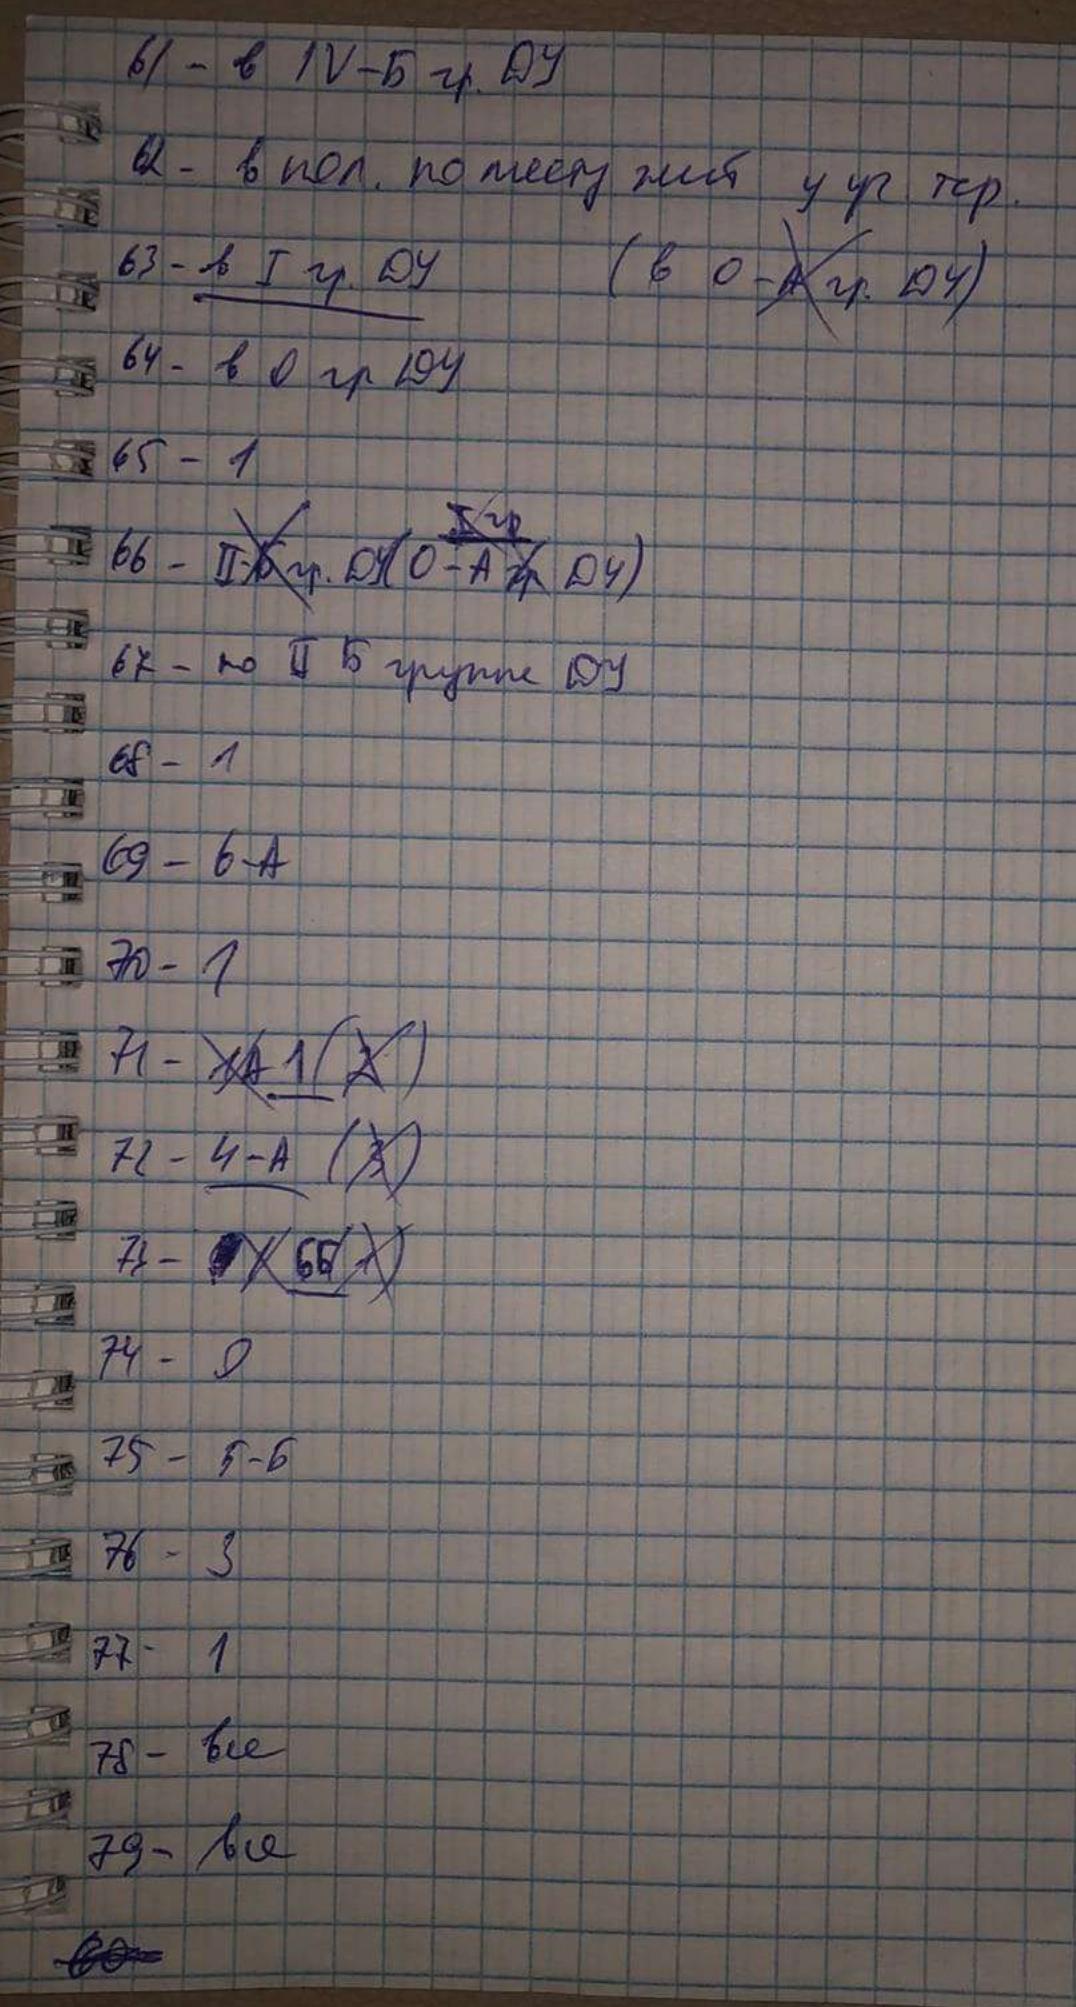 61 - в IV-Б гр. ДУ
62 - в пол. по месту жит у уч тер.
63 - в I гр. ДУ (в 0-А гр. ДУ)
64 - в 0 гр ДУ
65 - 1
I гр
66 - II-Б гр. ДУ (0-А гр ДУ)
67 - по II Б группе ДУ
68 - 1
69 - 6-А
70 - 1
71 - 1 (2)
72 - 4-А (3)
73 - 6Б
74 - 0
75 - 5-Б
76 - 3
77 - 1
78 - все
79 - все
60